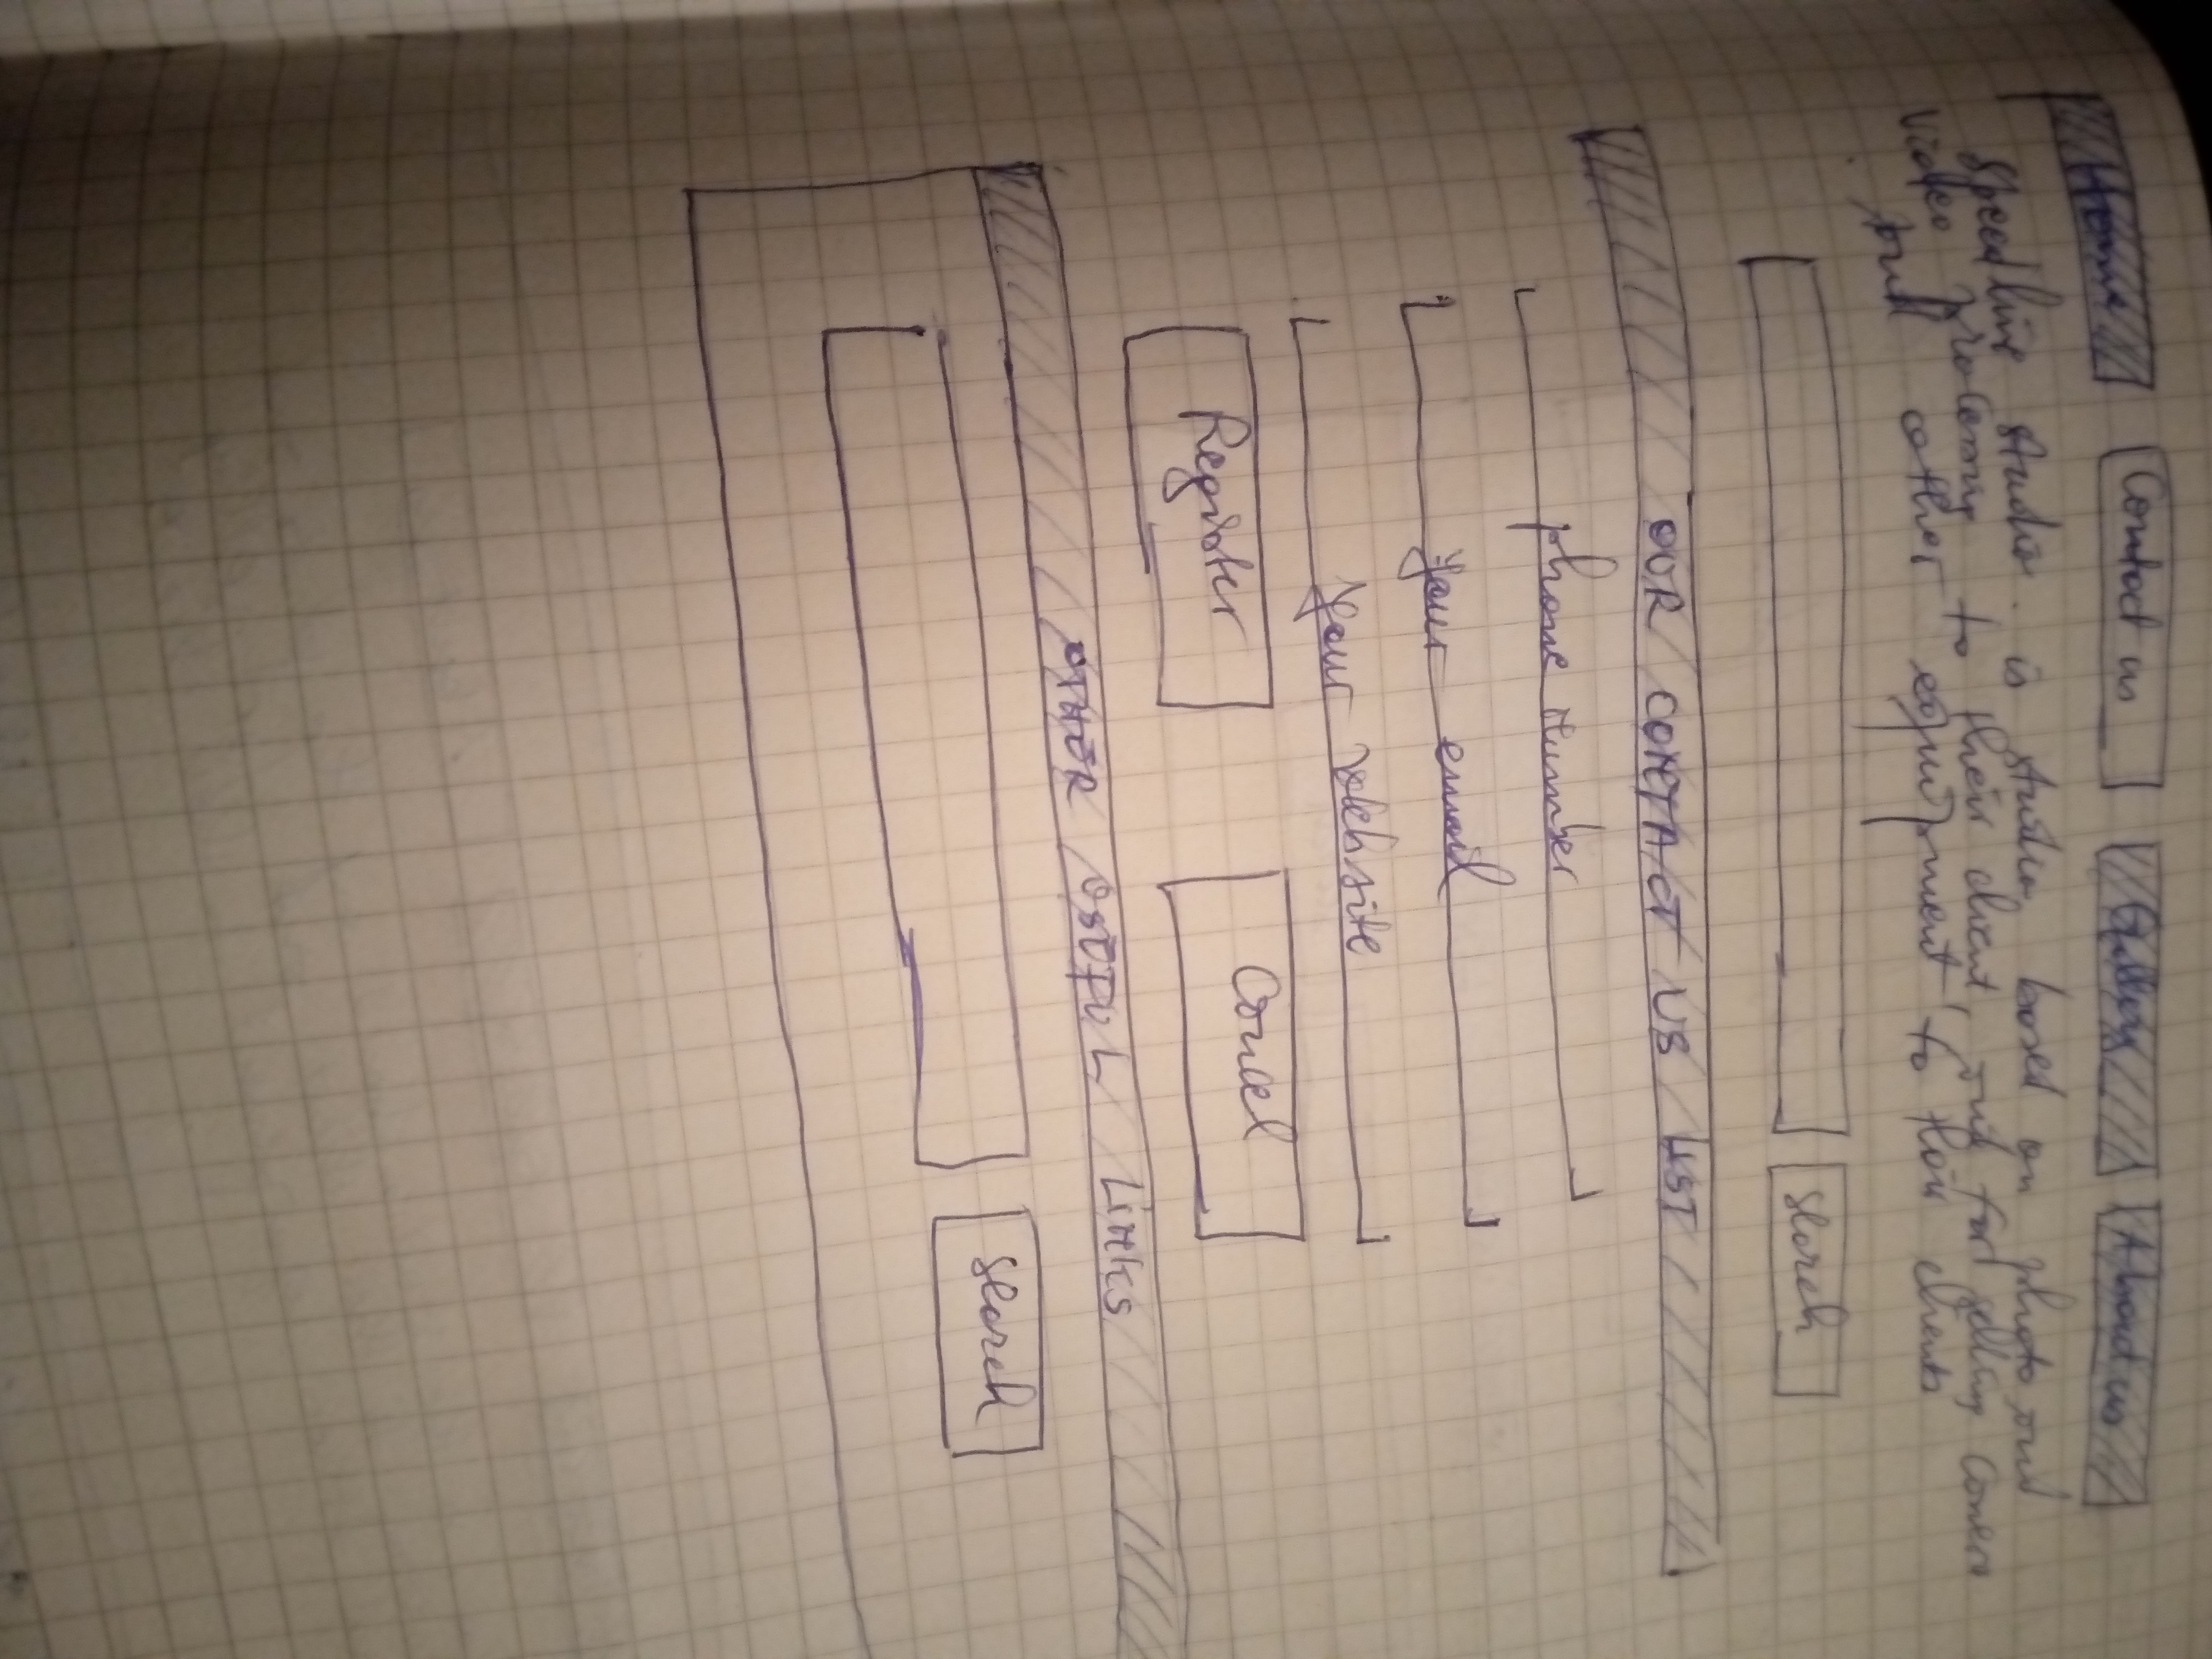 Home Contact us Gallery About us
Speedline studio is studio based on photo and
video processing to their client, and for selling camera
and other equipment to their clients
search
OUR CONTACT US LIST
phone number
your email
your website
Register Cancel
OTHER USEFUL LINKS
search